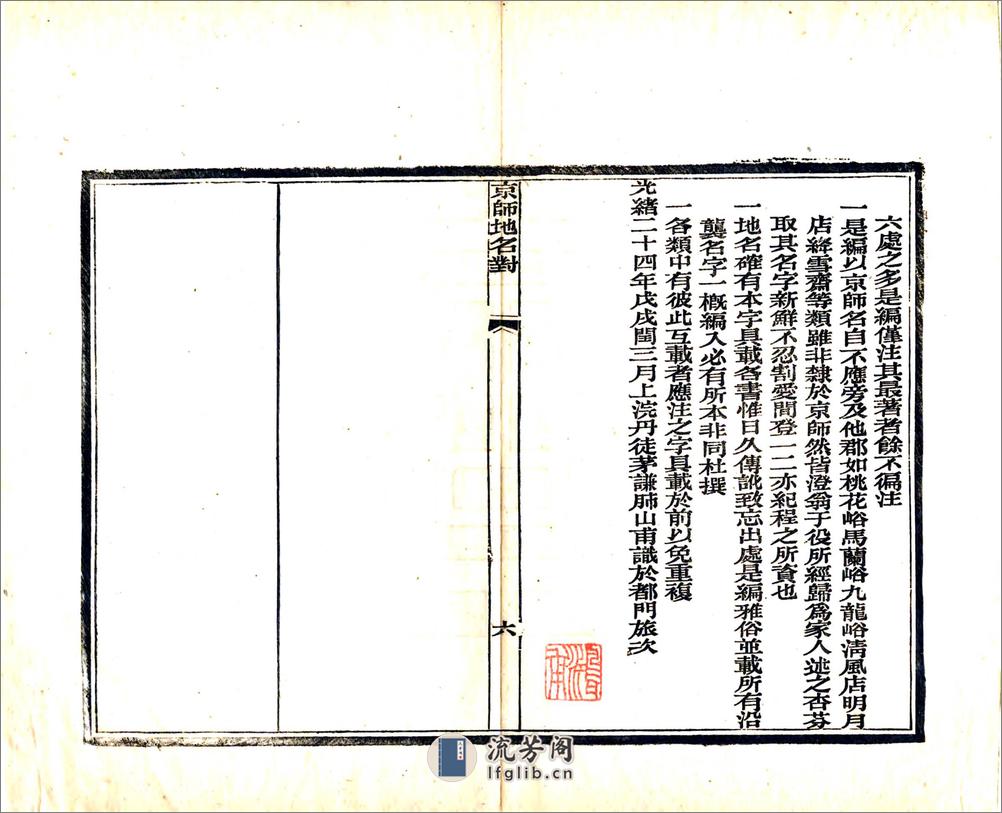 六處之多是編僅注其最著者餘不徧注
一是編以京師名自不應旁及他郡如桃花峪馬蘭峪九龍峪清風店明月
店絳雪齋等類雖非隸於京師然皆澄翁于役所經歸爲家人述之杏芬
取其名字新鮮不忍割愛間登一二亦紀程之所資也
一地名確有本字具載各書惟日久傳訛致忘出處是編雅俗並載所有沿
襲名字一槪編入必有所本非同杜撰
一各類中有彼此互載者應注之字具載於前以免重複
光緒二十四年戊戌閏三月上浣丹徒茅謙肺山甫識於都門旅次
京師地名對
六
流芳阁
lfglib.cn